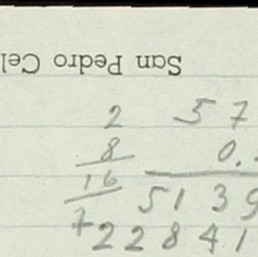 San Pedro Cel
2 57
8 0.
16 5139
7 22841